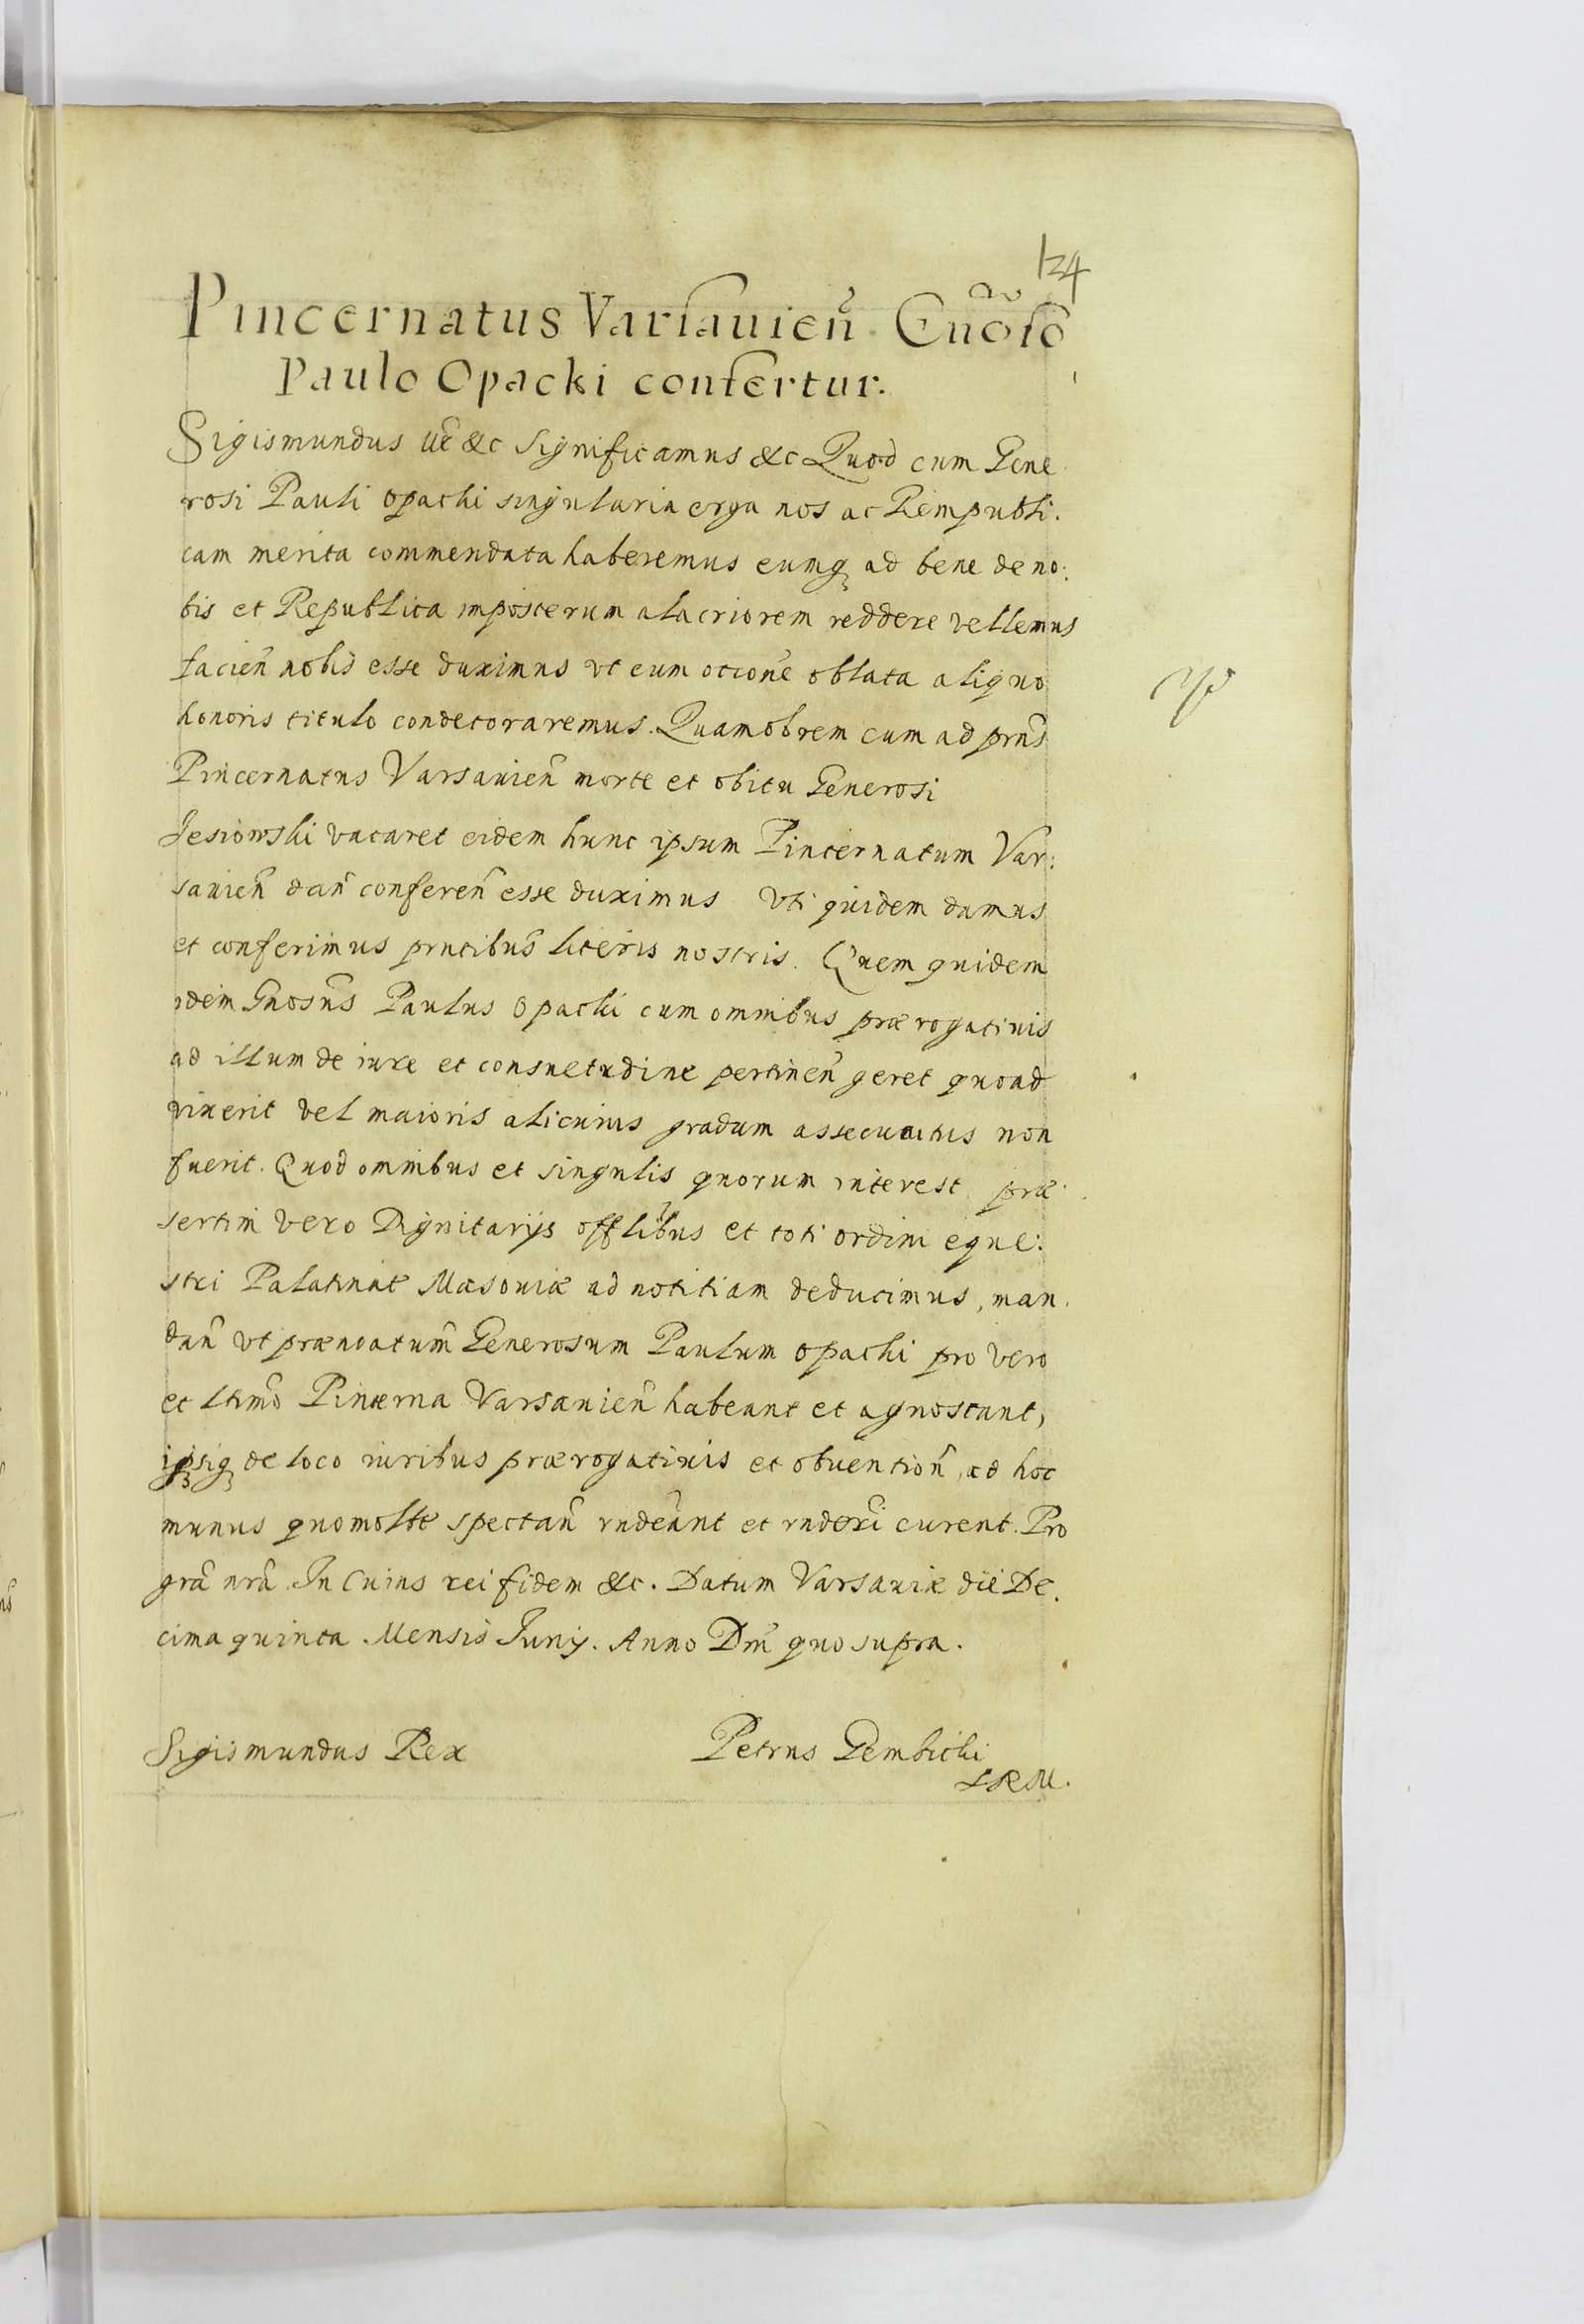 124
Pincernatus Varsauien̄ Gn̄oso
Paulo Opacki confertur.
Sigismundus etc̄ &c Significamus &c Quod cum Gene
rosi Pauli Opacki singularia erga nos ac Rempubli.
cam merita commendata haberemus eumq̨ ad bene de no:
bis et Republica imposterum alacriorem reddere vellemus
facien̄ nobis esse duximus vt eum occone͂ oblata aliquo
honoris titulo condecoraremus. Quamobrem cum ad prns̄
Pincernatus Varsauien̄ morte et obitu Generosi
Jesiowski vacaret eidem hunc ipsum Pincernatum Var:
sauien̄ dan̄ conferen̄ esse duximus Vti quidem damus
et conferimus prntibus̄ literis nostris. Quem quidem
idem Gnosus̄ Paulus Opacki cum omnibus prærogatiuis
ad illum de iure et consuetudine pertinen̄ geret quoad
vixerit vel maioris alicuius gradum assecutus non
fuerit. Quod omnibus et singulis quorum interest præ
sertim vero Dignitarijs offlibus̄ et toti ordini eque:
stri Palatinat͂ Masouiæ ad notitiam deducimus, man.
dan̄ vt prænoatum̄ Generosum Paulum Opacki pro vero
et ltimo͂ Pincerna Varsauien̄ habeant et agnoscant,
ipsiq̨ de loco iuribus prærogatiuis et obuention̄, ad hoc
munus quomolt͂e spectan̄ rndeant͂ et rnderi͂ curent. Pro
gra͂ nra͂ In Cuius rei fidem &c. Datum Varsauiæ die De.
cima quinta Mensis Junij. Anno Dm̄ quo supra.
Sigismundus Rex
Petrus Gembicki
SRM.